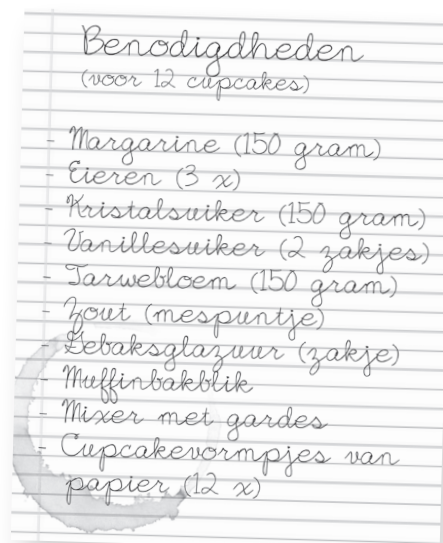 Benodigdheden
(voor 12 cupcakes)
- Margarine (150 gram)
- Eieren (3 x)
- Kristalsuiker (150 gram)
- Vanillesuiker (2 zakjes)
- Tarwebloem (150 gram)
- Zout (mespuntje)
- Gebaksglazuur (zakje)
- Muffinbakblik
- Mixer met gardes
- Cupcakevormpjes van
papier (12 x)